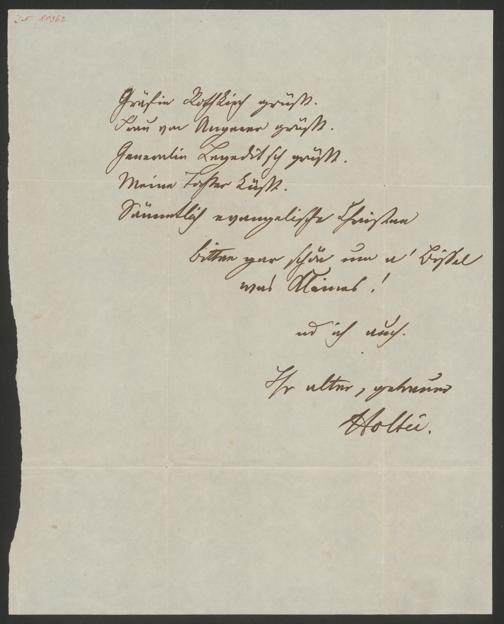 I.N. 80962
Gräfin Rothkirch grüßt.
Frau von Angerer grüßt.
Generalin Legeditsch grüßt.
Meine Tochter küßt.
Sämmtlich evangelische Christen
bitten gar schön um a' Bissel
was Kleines!
und ich auch.
Ihr alter, getreuer
Holtei.